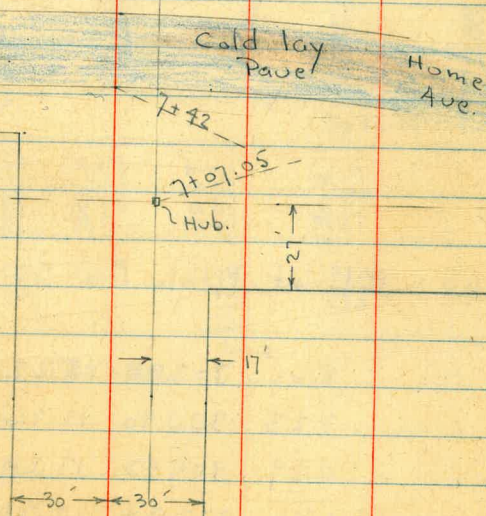 Cold lay
Pave
Home
Ave.
7+42
7+07.05
Hub.
27'
17'
30'
30'